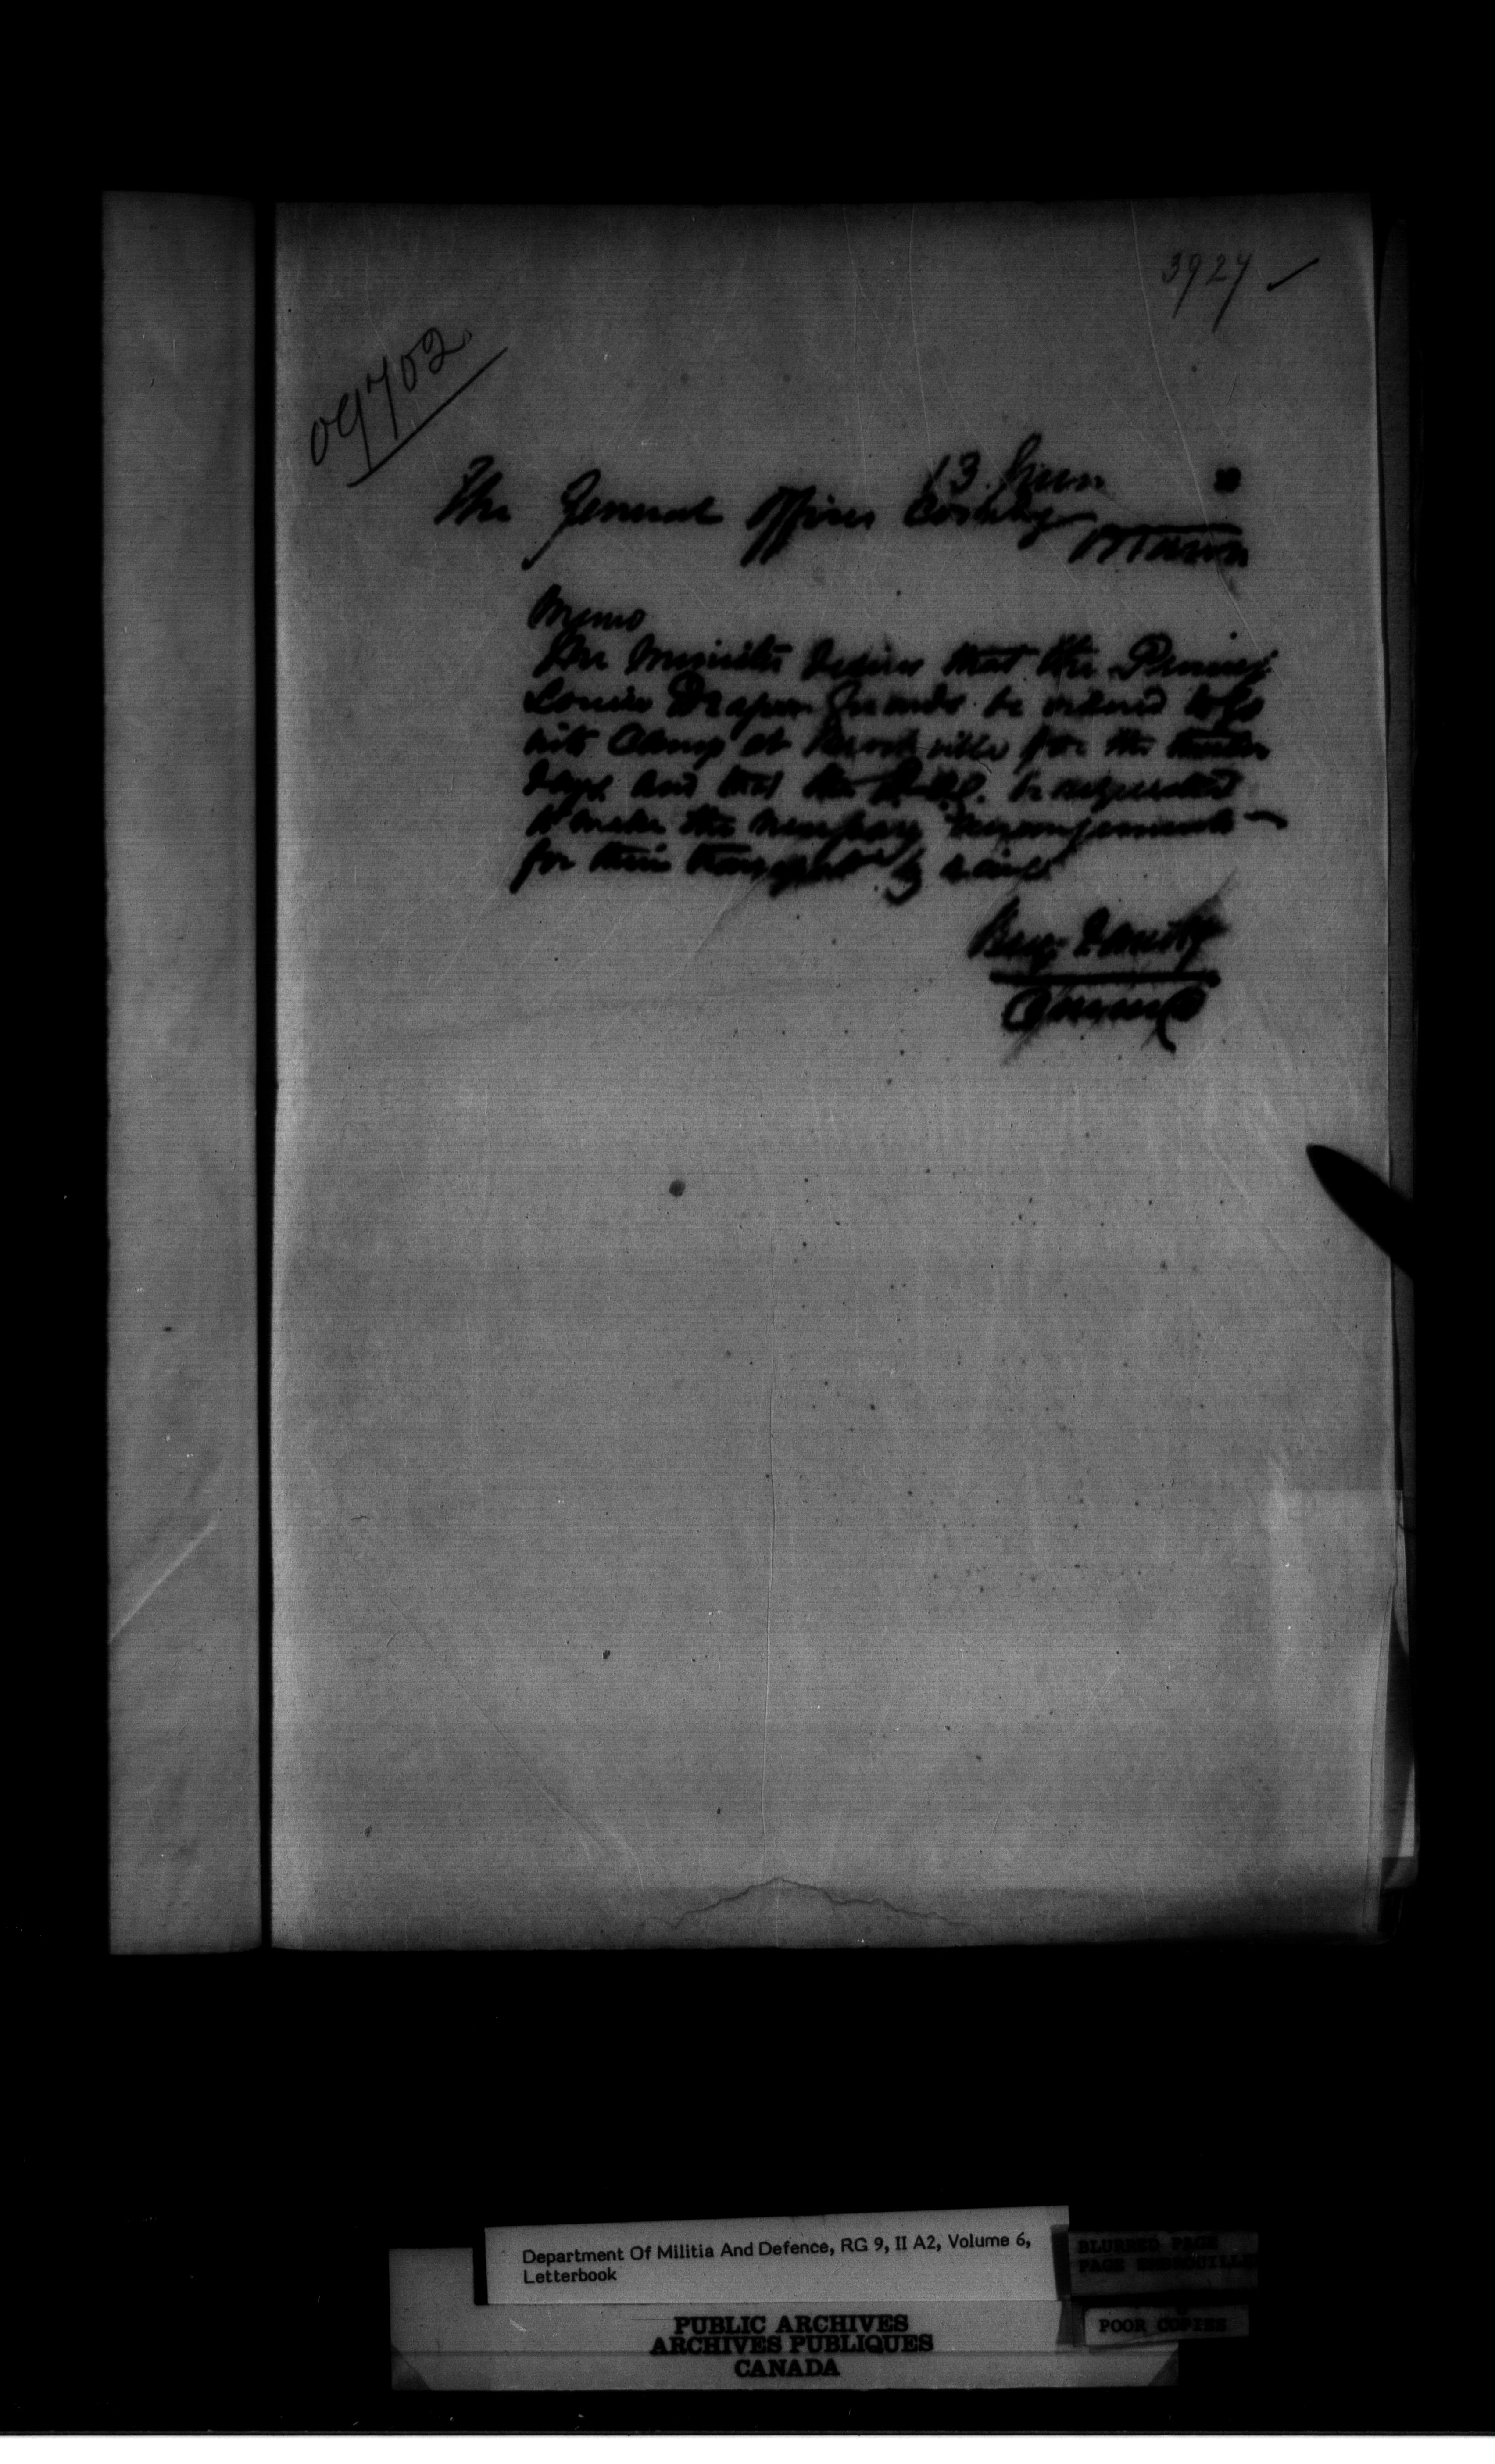 3927
09702
13 June
The General Officer Comdg
Ottawa
Memo
The Minister desires that the Princess
Louise Dragoon Guards be ordered to go
into Camp at Brockville for the twelve
days and that the be requested
to make the necessary arrangements
for their transport by
Department Of Militia And Defence, RG 9, II A2, Volume 6,
Letterbook
BLURRED PAGE
PAGE EMBROUILLEE
POOR COPIES
PUBLIC ARCHIVES
ARCHIVES PUBLIQUES
CANADA